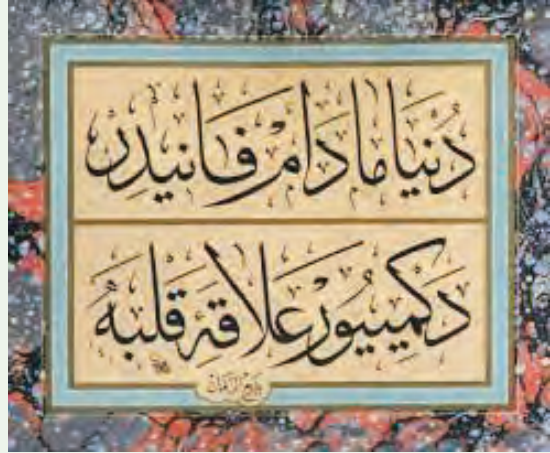 دُنْيَا مَادَامْ فَانِيدِرْ
دَكْمِييُورْ عَلَاقَۀِ قَلْبَه